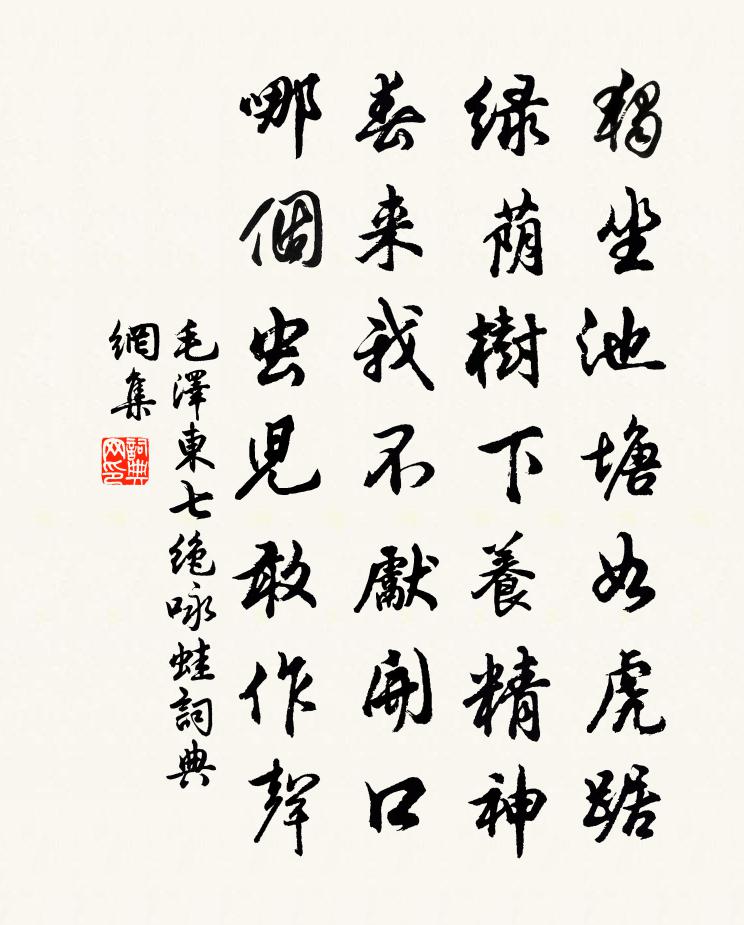 獨坐池塘如虎踞
绿荫樹下養精神
春来我不獻開口
哪個虫兒敢作聲
毛澤東七绝咏蛙詞典
網集
詞典
网印